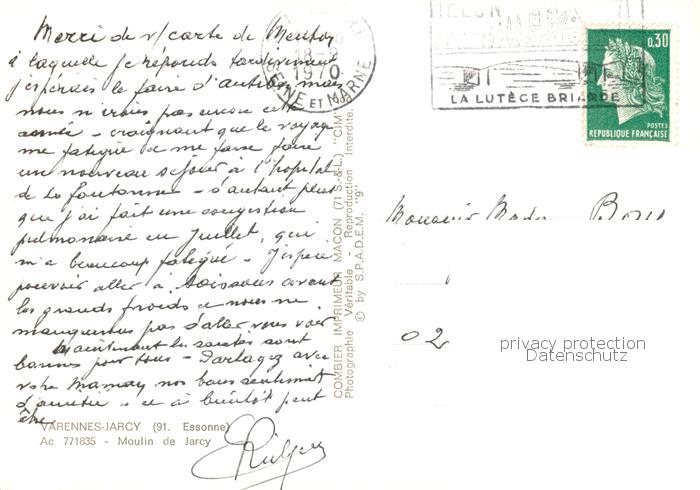 Merci de v/ carte de Menton
à laquelle je réponds tardivement
j'espérais le faire d'Antibes mais
nous n'irons pas encore cette
année - craignant que le voyage
me fatigue et me fasse faire
un nouveau séjour à l'hopital
de La Fontonne - d'autant plus
que j'ai fait une congestion
pulmonaire en Juillet, qui
m'a beaucoup fatigué - J'espère
pouvoir aller à Soissons avant
les grands froids et nous ne
manquerons pas d'aller vous voir
Maintenant les santés sont
bonnes pour tous - Partagez avec
votre Maman nos bons sentiments
d'amitié - et à bientôt peut
être
VARENNES-JARCY (91. Essonne)
Ac 771835 - Moulin de Jarcy
COMBIER IMPRIMEUR MACON (71 S.-&-L.) "CIM"
Photographie Véritable. Reproduction Interdite.
© by S.P.A.D.E.M. "9"
18-9
1970
SEINE ET MARNE
MELUN
LA LUTÈCE BRIARDE
0,30
POSTES
REPUBLIQUE FRANÇAISE
Monsieur Madame
02
privacy protection
Datenschutz